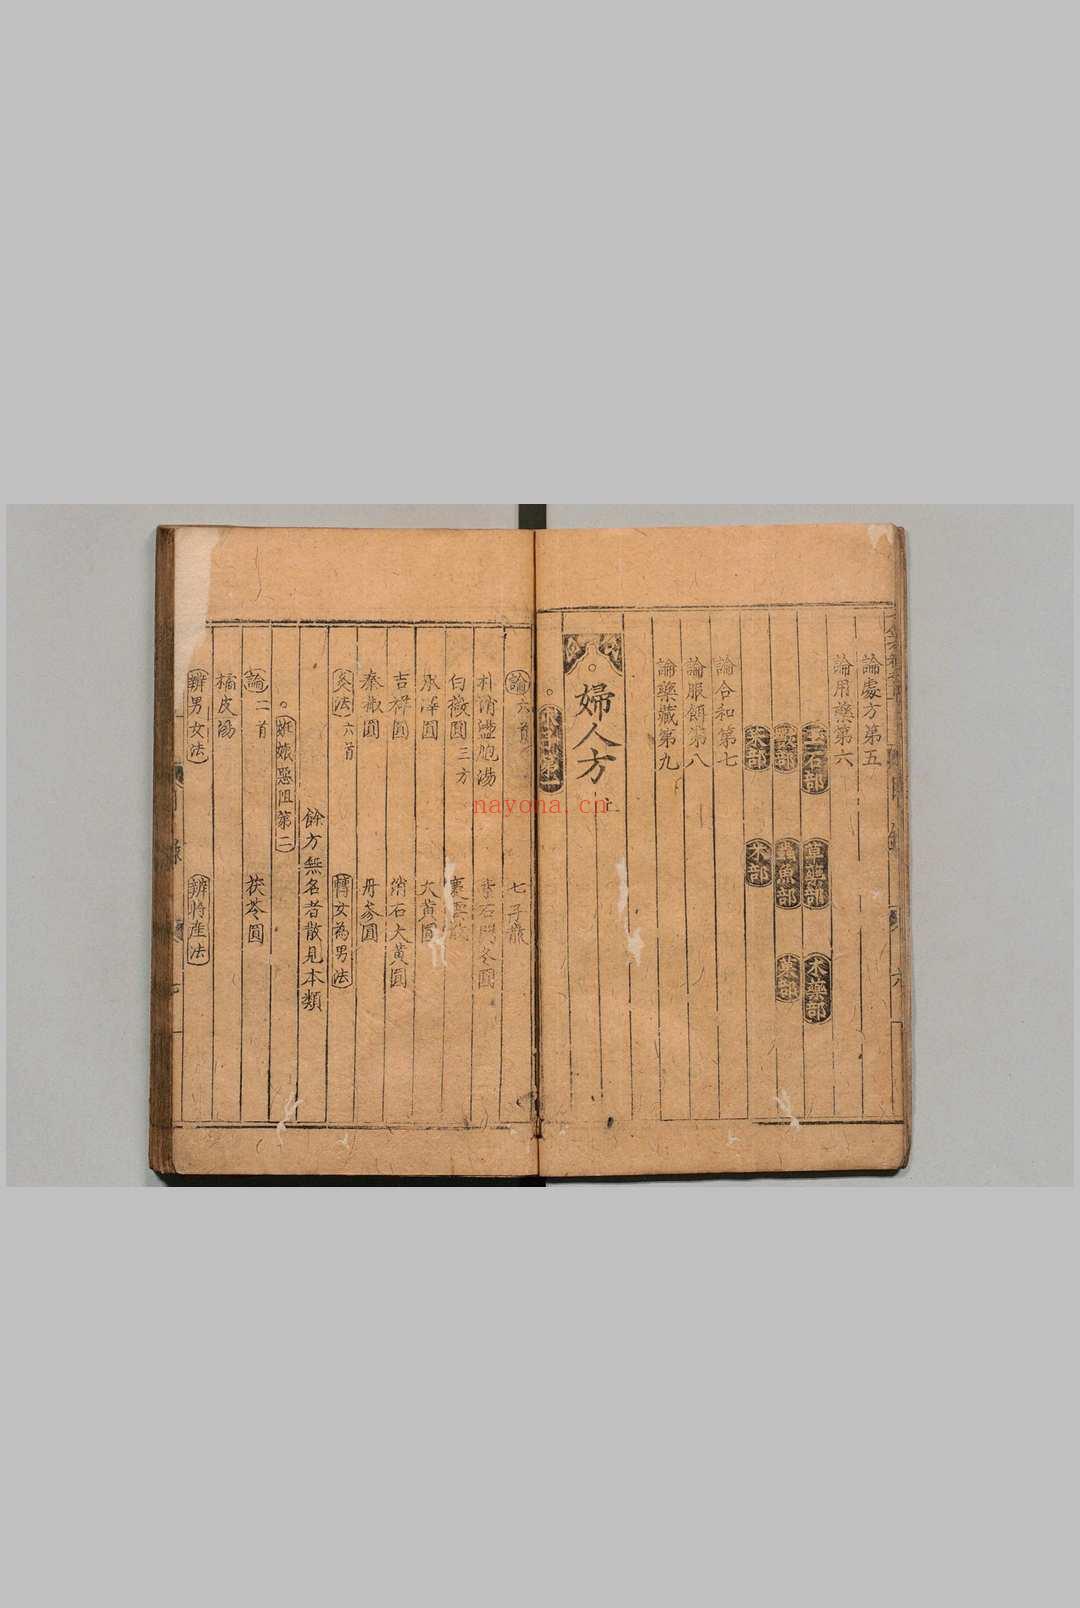 論處方第五
論用藥第六
玉石部 草藥部 木藥部
獸部 蟲魚部 菓部
菜部 米部
論合和第七
論服餌第八
論藥藏第九
婦人方 上
求子第一
論六首 七子散
朴消盪胞湯 紫石門冬圓
白薇圓三方
承澤圓 大黃圓
吉祥圓 消石大黃圓
秦椒圓 丹參圓
灸法六首 轉女為男法
餘方無名者散見本類
妊娠惡阻第二
論二首 茯苓圓
橘皮湯
辨男女法 辨將產法
目錄 七
nayona.cn